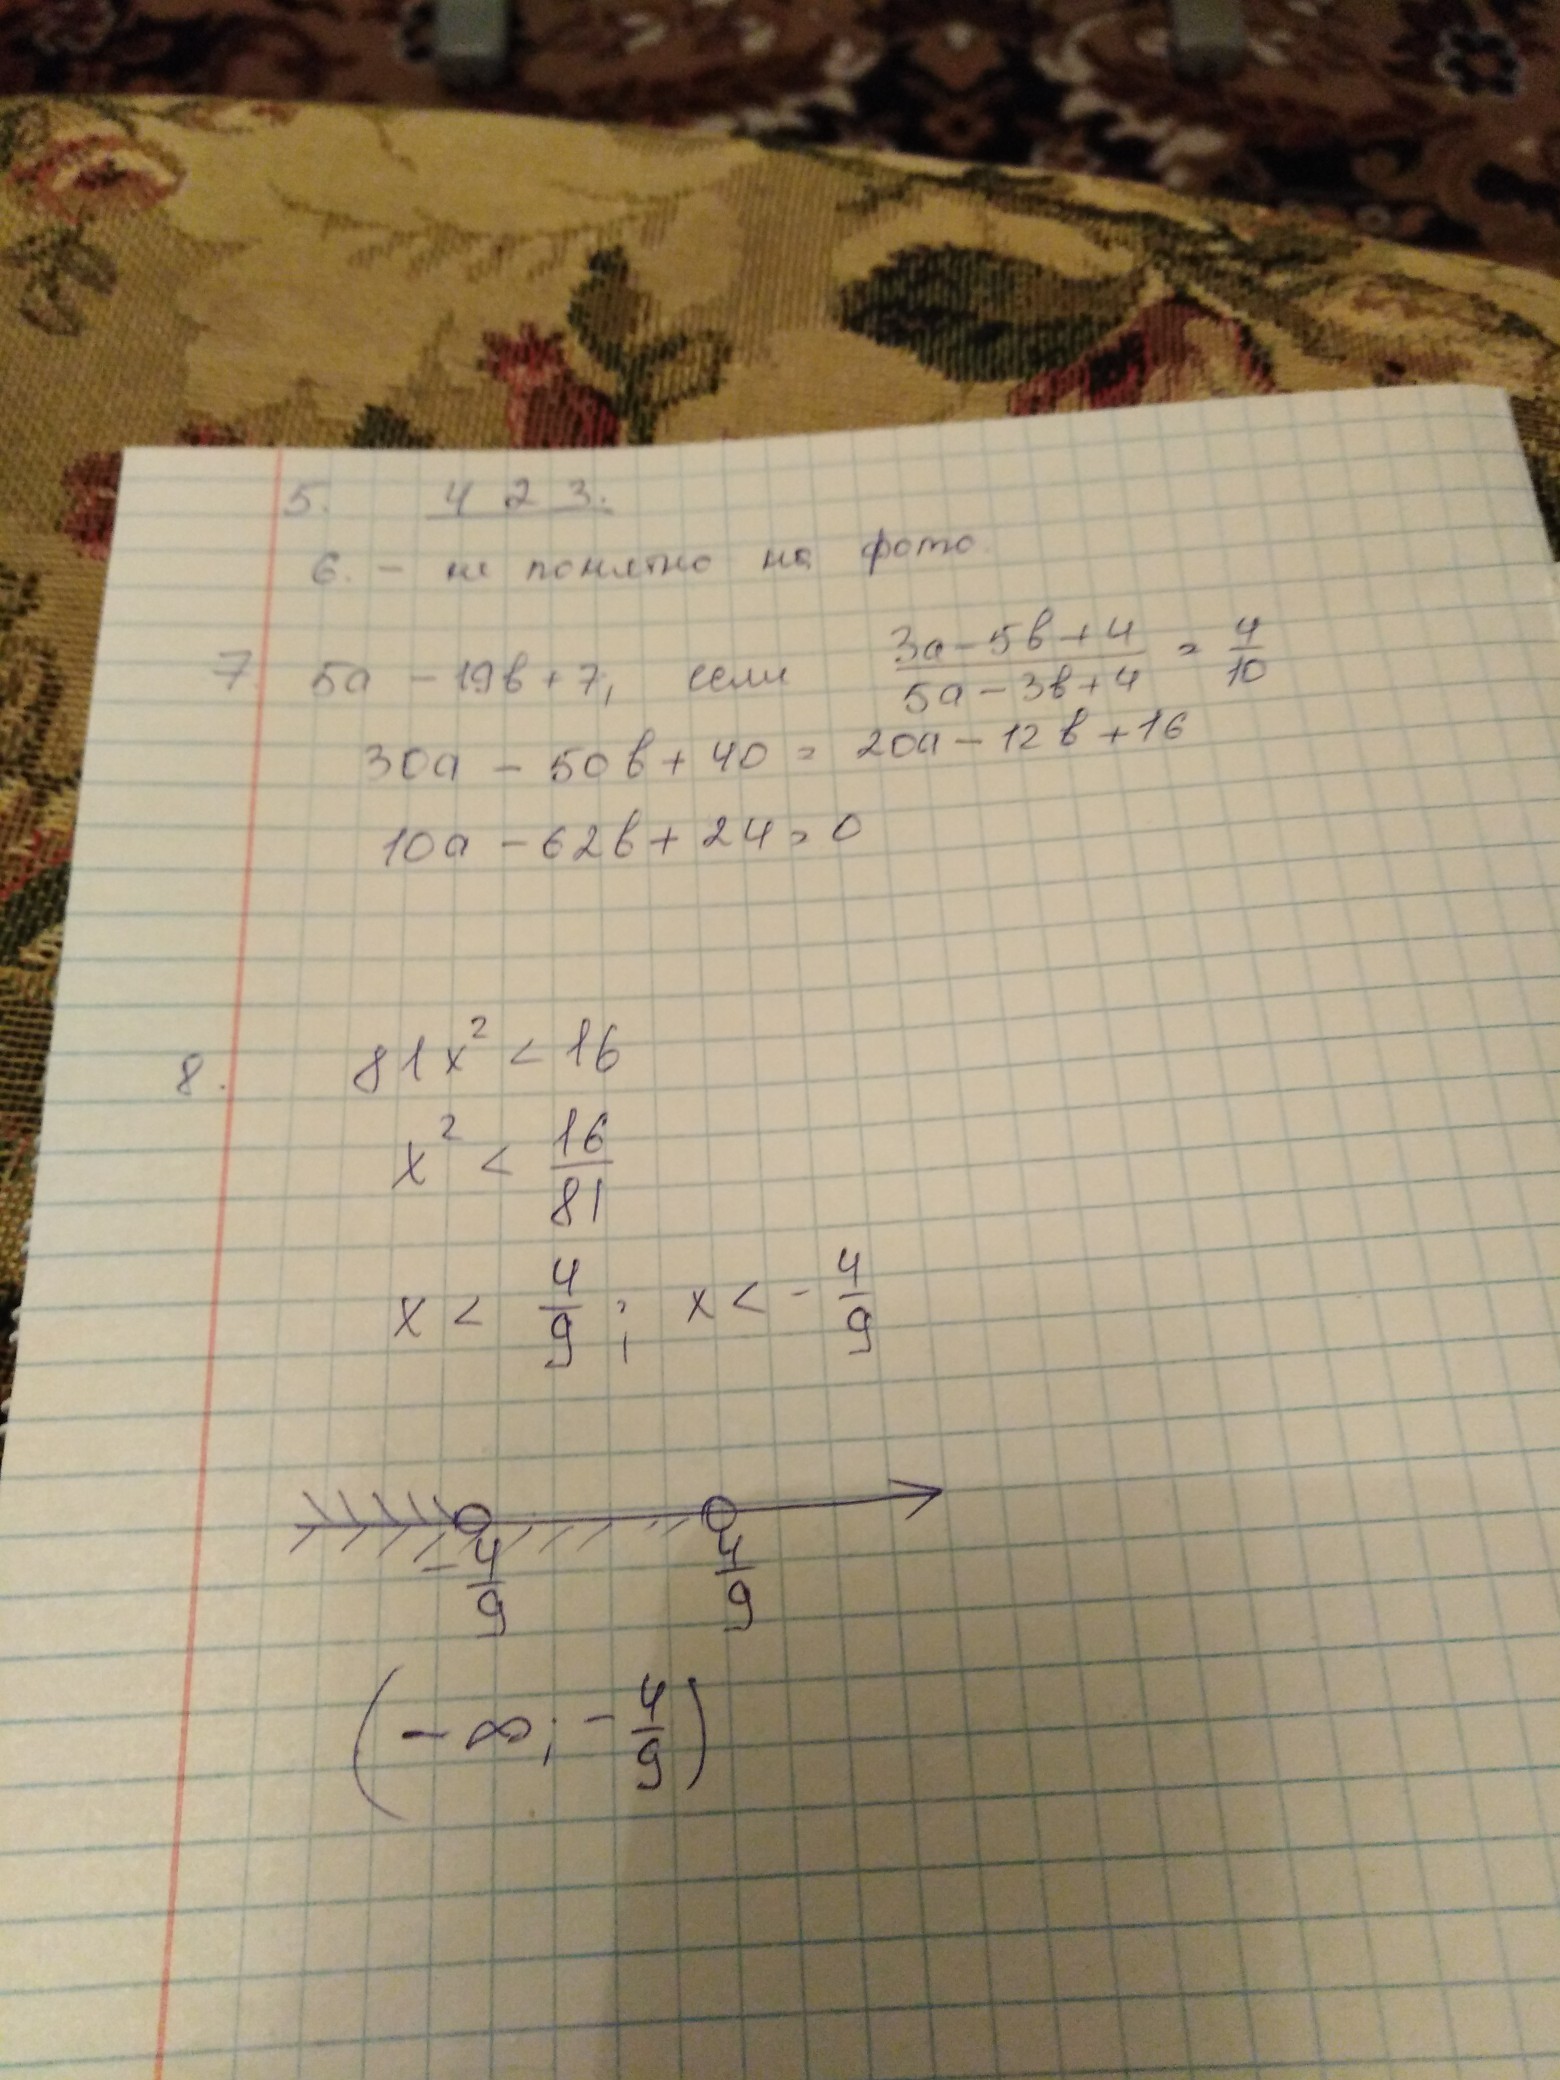 5. 4 2 3.
6. – не понятно на фото.
7. 5a – 19b + 7, если (3a – 5b + 4)/(5a – 3b + 4) = 4/10
30a – 50b + 40 = 20a – 12b + 16
10a – 62b + 24 = 0
8. 81x² < 16
x² < 16/81
x < 4/9 ; x < - 4/9
- 4/9 4/9
(- ∞; - 4/9)